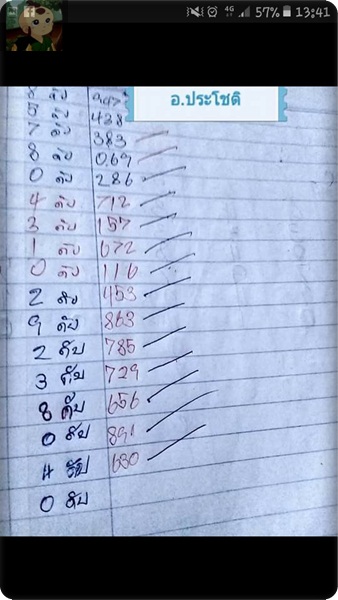 4G 57% 13:41
อ.ประโชติ
5 ดับ 438
7 ดับ 383
8 ดับ 069
0 ดับ 286
4 ดับ 712
3 ดับ 157
1 ดับ 672
0 ดับ 116
2 ดับ 453
9 ดับ 863
2 ดับ 785
3 ดับ 729
8 ดับ 656
0 ดับ 891
4 ดับ 680
0 ดับ